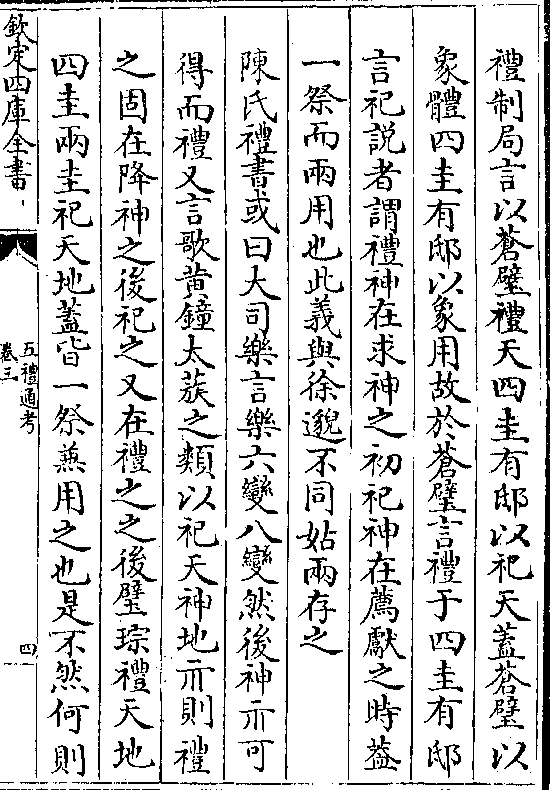 禮制局言以蒼璧禮天四圭有邸以祀天蓋蒼璧以
象體四圭有邸以象用故於蒼璧言禮于四圭有邸
言祀說者謂禮神在求神之初祀神在薦獻之時蓋
一祭而兩用也此義與徐邈不同姑兩存之
陳氏禮書或曰大司樂言樂六變八變然後神示可
得而禮又言歌黃鐘太蔟之類以祀天神地示則禮
之固在降神之後祀之又在禮之之後璧琮禮天地
四圭兩圭祀天地蓋皆一祭兼用之也是不然何則
欽定四庫全書
五禮通考
卷三
四